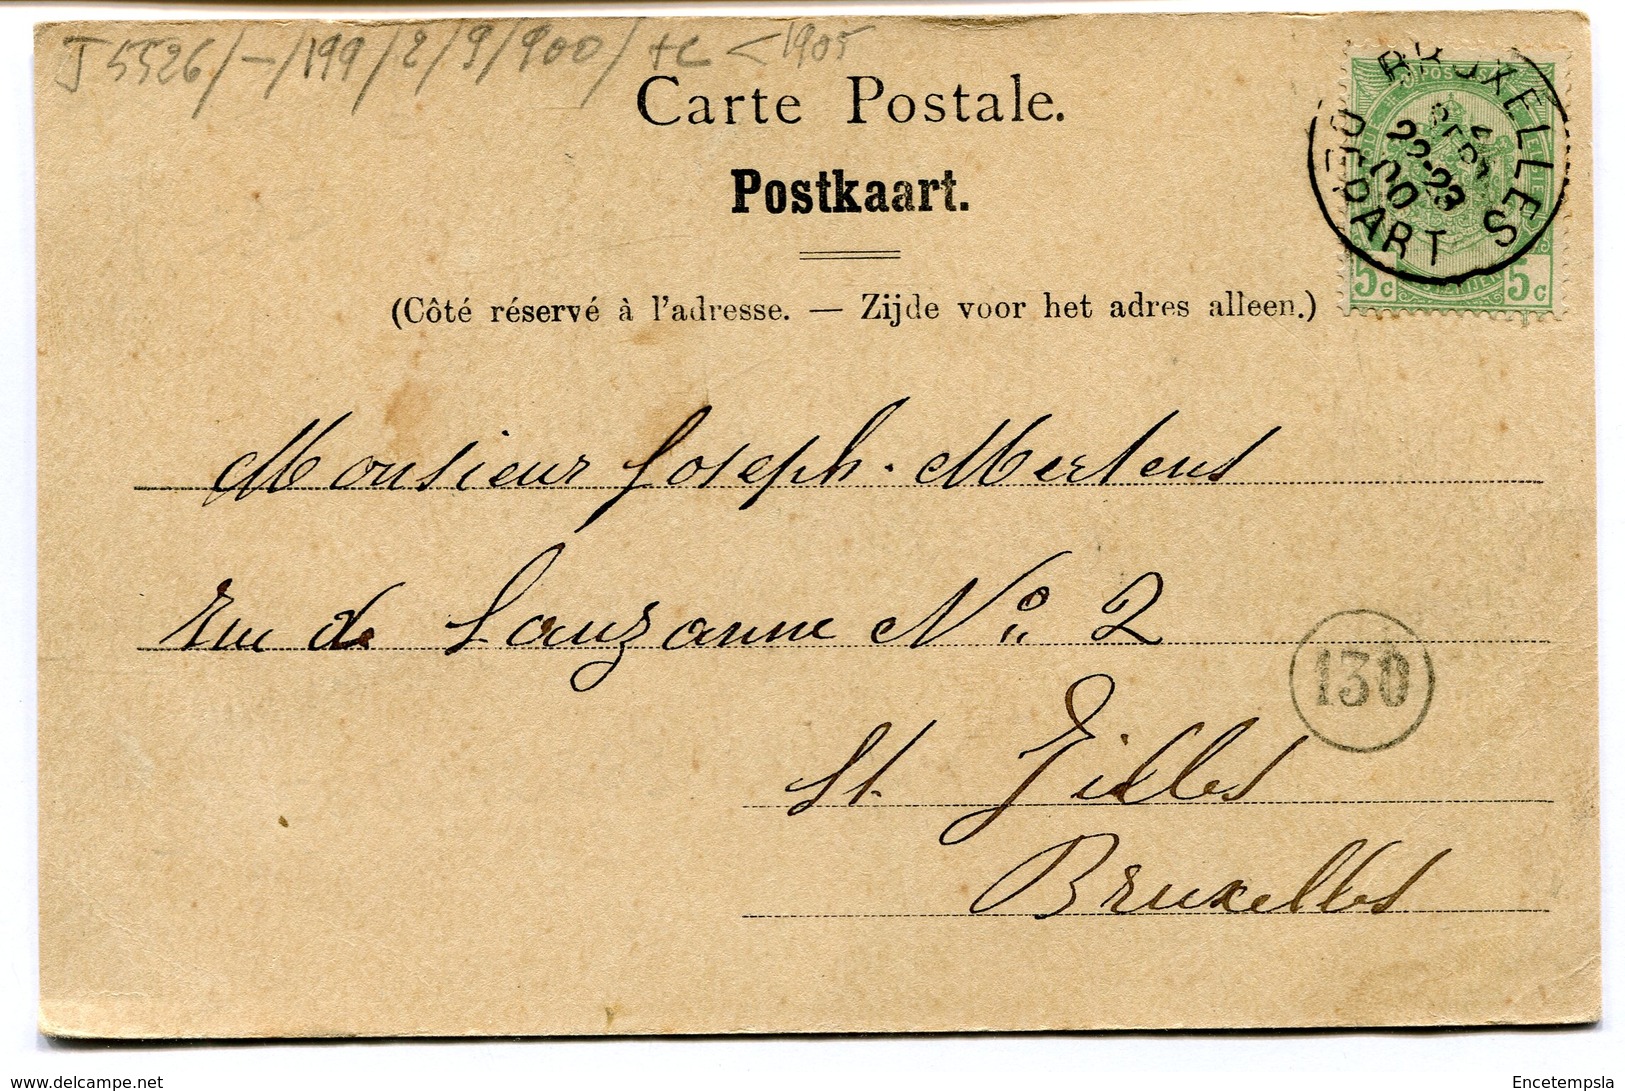 J5526/-/199/2/9/900/+c < 1905
Carte Postale.
Postkaart.
(Côté réservé à l'adresse. — Zijde voor het adres alleen.)
BRUXELLES
22-23
00
DEPART
5c 5c
Monsieur Joseph. Mertens
rue de Lauzanne No. 2
130
St. Gilles
Bruxelles
www.delcampe.net
Encetempsla